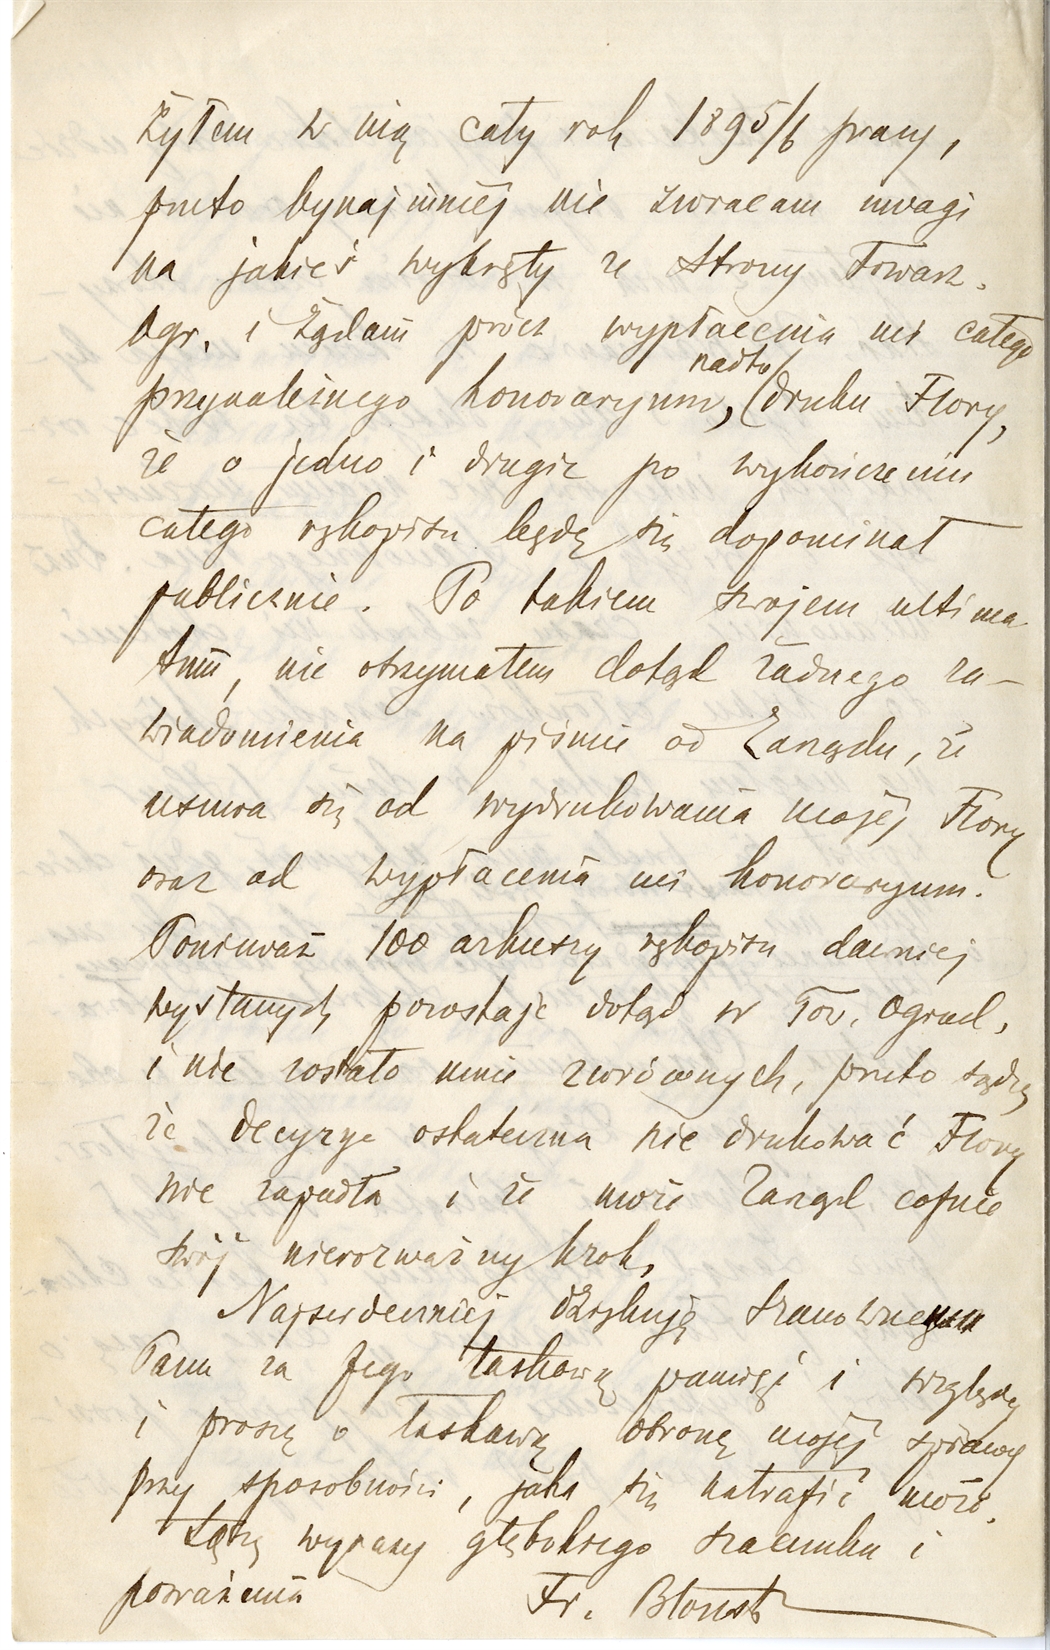 żyłem w nią cały rok 1895/6 pracy,
przeto bynajmniej nie zwracam uwagi
na jakieś wykręty ze strony Towarz.
Ogr. i żądam prócz wypłacenia mi całego
przynależnego honoraryum, nadto druku Flory,
że o jedno i drugie po wykończeniu
całego rękopisu będę się dopominał
publicznie. Po takiem swojem ultima
tum, nie otrzymałem dotąd żadnego za-
wiadomienia na piśmie od Zarządu, że
usuwa się od wydrukowania mojej Flory
oraz od wypłacenia mi honoraryum.
Ponieważ 100 arkuszy rękopisu dawniej
wysłanych pozostaje dotąd w Tow. Ogrod.
i nie zostało mnie zwróconych, przeto sądzę
że decyzya ostateczna nie drukować Flory
nie zapadła i że może Zarząd cofnie
swój nierozważny krok.
Najserdeczniej dziękuję Szanownemu
Panu za Jego łaskawą pamięć i względy
i proszę o łaskawą obronę mojej sprawy
przy sposobności, jaka się natrafić może.
Łączę wyrazy głębokiego szacunku i
poważania Fr. Błoński